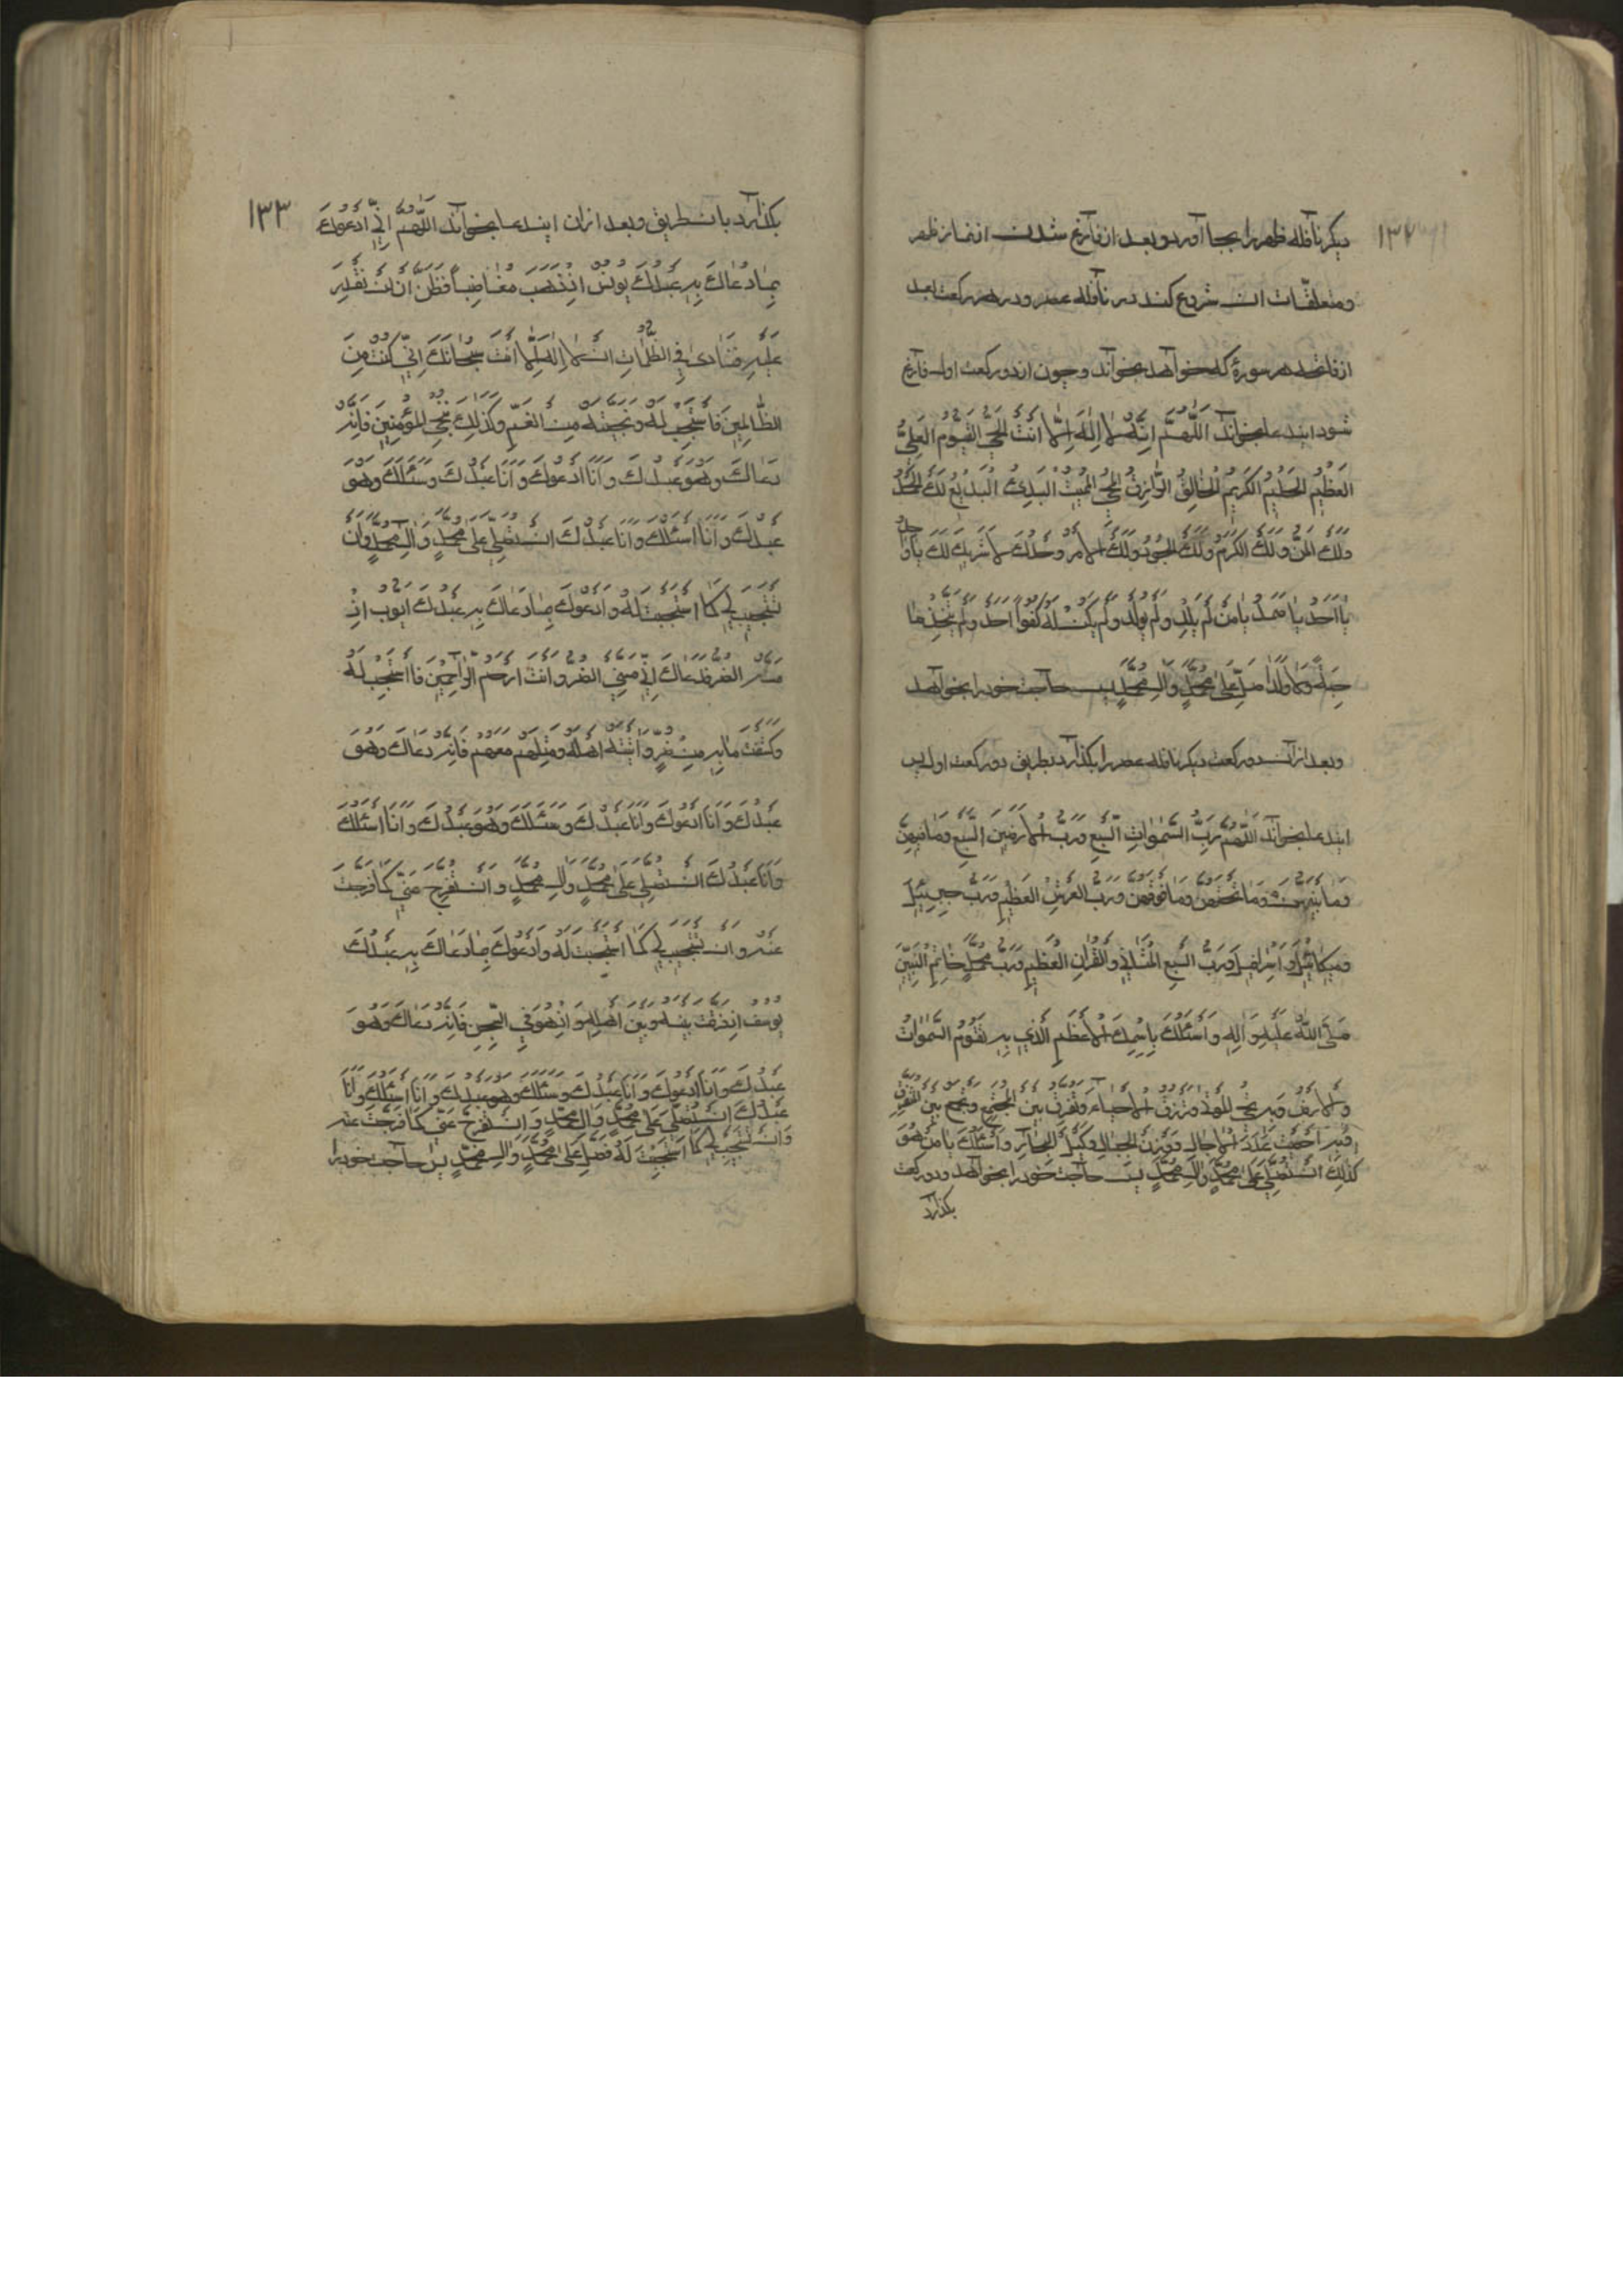 ۱۳۲
دیکر نافله ظهر را بجا آورد و بعد از فارغ شدن از نماز ظهر
ومتعلقات ان شروع کند در نافله عصر و در هر رکعت بعد
از فاتحه هر سورهٔ که خواهد بخواند و چون از دو رکعت اول فارغ
شود ایندعا بخواند اَللّهُمَّ اِنَّهُ لا اِلهَ اِلّا اَنْتَ الْحَیُّ الْقَیُّومُ الْعَلِیُّ
الْعَظیمُ الْحَلیمُ الْکَریمُ الْخالِقُ الرّازِقُ الْمُحْیِی الْمُمیتُ الْبَدِیُ الْبَدیعُ لَکَ الْحَمْدُ
وَلَکَ الْمَنُّ وَلَکَ الْکَرَمُ وَلَکَ الْجُودُ وَلَکَ الْاَمْرُ وَحْدَکَ لا شَریکَ لَکَ یا واحِدُ
یا اَحَدُ یا صَمَدُ یا مَنْ لَمْ یَلِدْ وَلَمْ یُولَدْ وَلَمْ یَکُنْ لَهُ کُفُوًا اَحَدٌ وَلَمْ یَتَّخِذْ صا
حِبَةً وَلا وَلَدًا صَلِّ عَلی مُحَمَّدٍ وَالِ مُحَمَّدٍ پس حاجت خود را بخواهد
وبعد از آن دو رکعت دیکر نافله عصر را بکذارد بطریق دو رکعت اول پس
ایندعا بخواند اَللّهُمَّ رَبَّ السَّمواتِ السَّبْعِ وَرَبَّ الْاَرَضینَ السَّبْعِ وَما فیهِنَّ
وَما بَیْنَهُنَّ وَما تَحْتَهُنَّ وَما فَوْقَهُنَّ وَرَبَّ الْعَرْشِ الْعَظیمِ وَرَبَّ جِبْرَئیلَ
وَمیکائیلَ وَاِسْرافیلَ وَرَبَّ السَّبْعِ الْمَثانی وَالْقُرْانِ الْعَظیمِ وَرَبَّ مُحَمَّدٍ خاتَمِ النَّبِیّینَ
صَلَّی اللّهُ عَلَیْهِ وَالِهِ وَاَسْئَلُکَ بِاسْمِکَ الْاَعْظَمِ الَّذی بِهِ تَقُومُ السَّمواتُ
وَالْاَرْضُ وَبِهِ تُحْیِی الْمَوْتی وَتَرْزُقُ الْاَحْیاءَ وَتُفَرِّقُ بَیْنَ الْمُجْتَمِعِ وَتَجْمَعُ بَیْنَ الْمُتَفَرِّقِ
وَبِهِ اَحْصَیْتَ عَدَدَ الْاجالِ وَوَزْنَ الْجِبالِ وَکَیْلَ الْبِحارِ وَاَسْئَلُکَ یا مَنْ هُوَ
کَذلِکَ اَنْ تُصَلِّیَ عَلی مُحَمَّدٍ وَالِ مُحَمَّدٍ پس حاجت خود را بخواهد ودو رکعت
بکذارد
۱۳۳
بکذارد بانطریق وبعد از ان ایندعا بخواند اَللّهُمَّ اِنّی اَدْعُوکَ
بِما دَعاکَ بِهِ عَبْدُکَ یُونُسُ اِذْ ذَهَبَ مُغاضِبًا فَظَنَّ اَنْ لَنْ نَقْدِرَ
عَلَیْهِ فَنادی فِی الظُّلُماتِ اَنْ لا اِلهَ اِلّا اَنْتَ سُبْحانَکَ اِنّی کُنْتُ مِنَ
الظّالِمینَ فَاسْتَجَبْتَ لَهُ وَنَجَّیْتَهُ مِنَ الْغَمِّ وَکَذلِکَ نُنْجِی الْمُؤْمِنینَ فَاِنَّهُ
دَعاکَ وَهُوَ عَبْدُکَ وَاَنَا اَدْعُوکَ وَاَنَا عَبْدُکَ وَسَئَلَکَ وَهُوَ
عَبْدُکَ وَاَنَا اَسْئَلُکَ وَاَنَا عَبْدُکَ اَنْ تُصَلِّیَ عَلی مُحَمَّدٍ وَالِ مُحَمَّدٍ وَاَنْ
تَسْتَجیبَ لی کَمَا اسْتَجَبْتَ لَهُ وَاَدْعُوکَ بِما دَعاکَ بِهِ عَبْدُکَ اَیُّوبُ اِذْ
مَسَّهُ الضُّرُّ فَدَعاکَ اَنّی مَسَّنِیَ الضُّرُّ وَاَنْتَ اَرْحَمُ الرّاحِمینَ فَاسْتَجَبْتَ لَهُ
وَکَشَفْتَ ما بِهِ مِنْ ضُرٍّ وَاتَیْتَهُ اَهْلَهُ وَمِثْلَهُمْ مَعَهُمْ فَاِنَّهُ دَعاکَ وَهُوَ
عَبْدُکَ وَاَنَا اَدْعُوکَ وَاَنَا عَبْدُکَ وَسَئَلَکَ وَهُوَ عَبْدُکَ وَاَنَا اَسْئَلُکَ
وَاَنَا عَبْدُکَ اَنْ تُصَلِّیَ عَلی مُحَمَّدٍ وَالِ مُحَمَّدٍ وَاَنْ تُفَرِّجَ عَنّی کَما فَرَّجْتَ
عَنْهُ وَاَنْ تَسْتَجیبَ لی کَمَا اسْتَجَبْتَ لَهُ وَاَدْعُوکَ بِما دَعاکَ بِهِ عَبْدُکَ
یُوسُفُ اِذْ فَرَّقْتَ بَیْنَهُ وَبَیْنَ اَهْلِهِ وَاِذْ هُوَ فِی السِّجْنِ فَاِنَّهُ دَعاکَ وَهُوَ
عَبْدُکَ وَاَنَا اَدْعُوکَ وَاَنَا عَبْدُکَ وَسَئَلَکَ وَهُوَ عَبْدُکَ وَاَنَا اَسْئَلُکَ وَاَنَا
عَبْدُکَ اَنْ تُصَلِّیَ عَلی مُحَمَّدٍ وَالِ مُحَمَّدٍ وَاَنْ تُفَرِّجَ عَنّی کَما فَرَّجْتَ عَنْهُ
وَاَنْ تَسْتَجیبَ لی کَمَا اسْتَجَبْتَ لَهُ فَصَلِّ عَلی مُحَمَّدٍ وَالِ مُحَمَّدٍ پس حاجت خود را